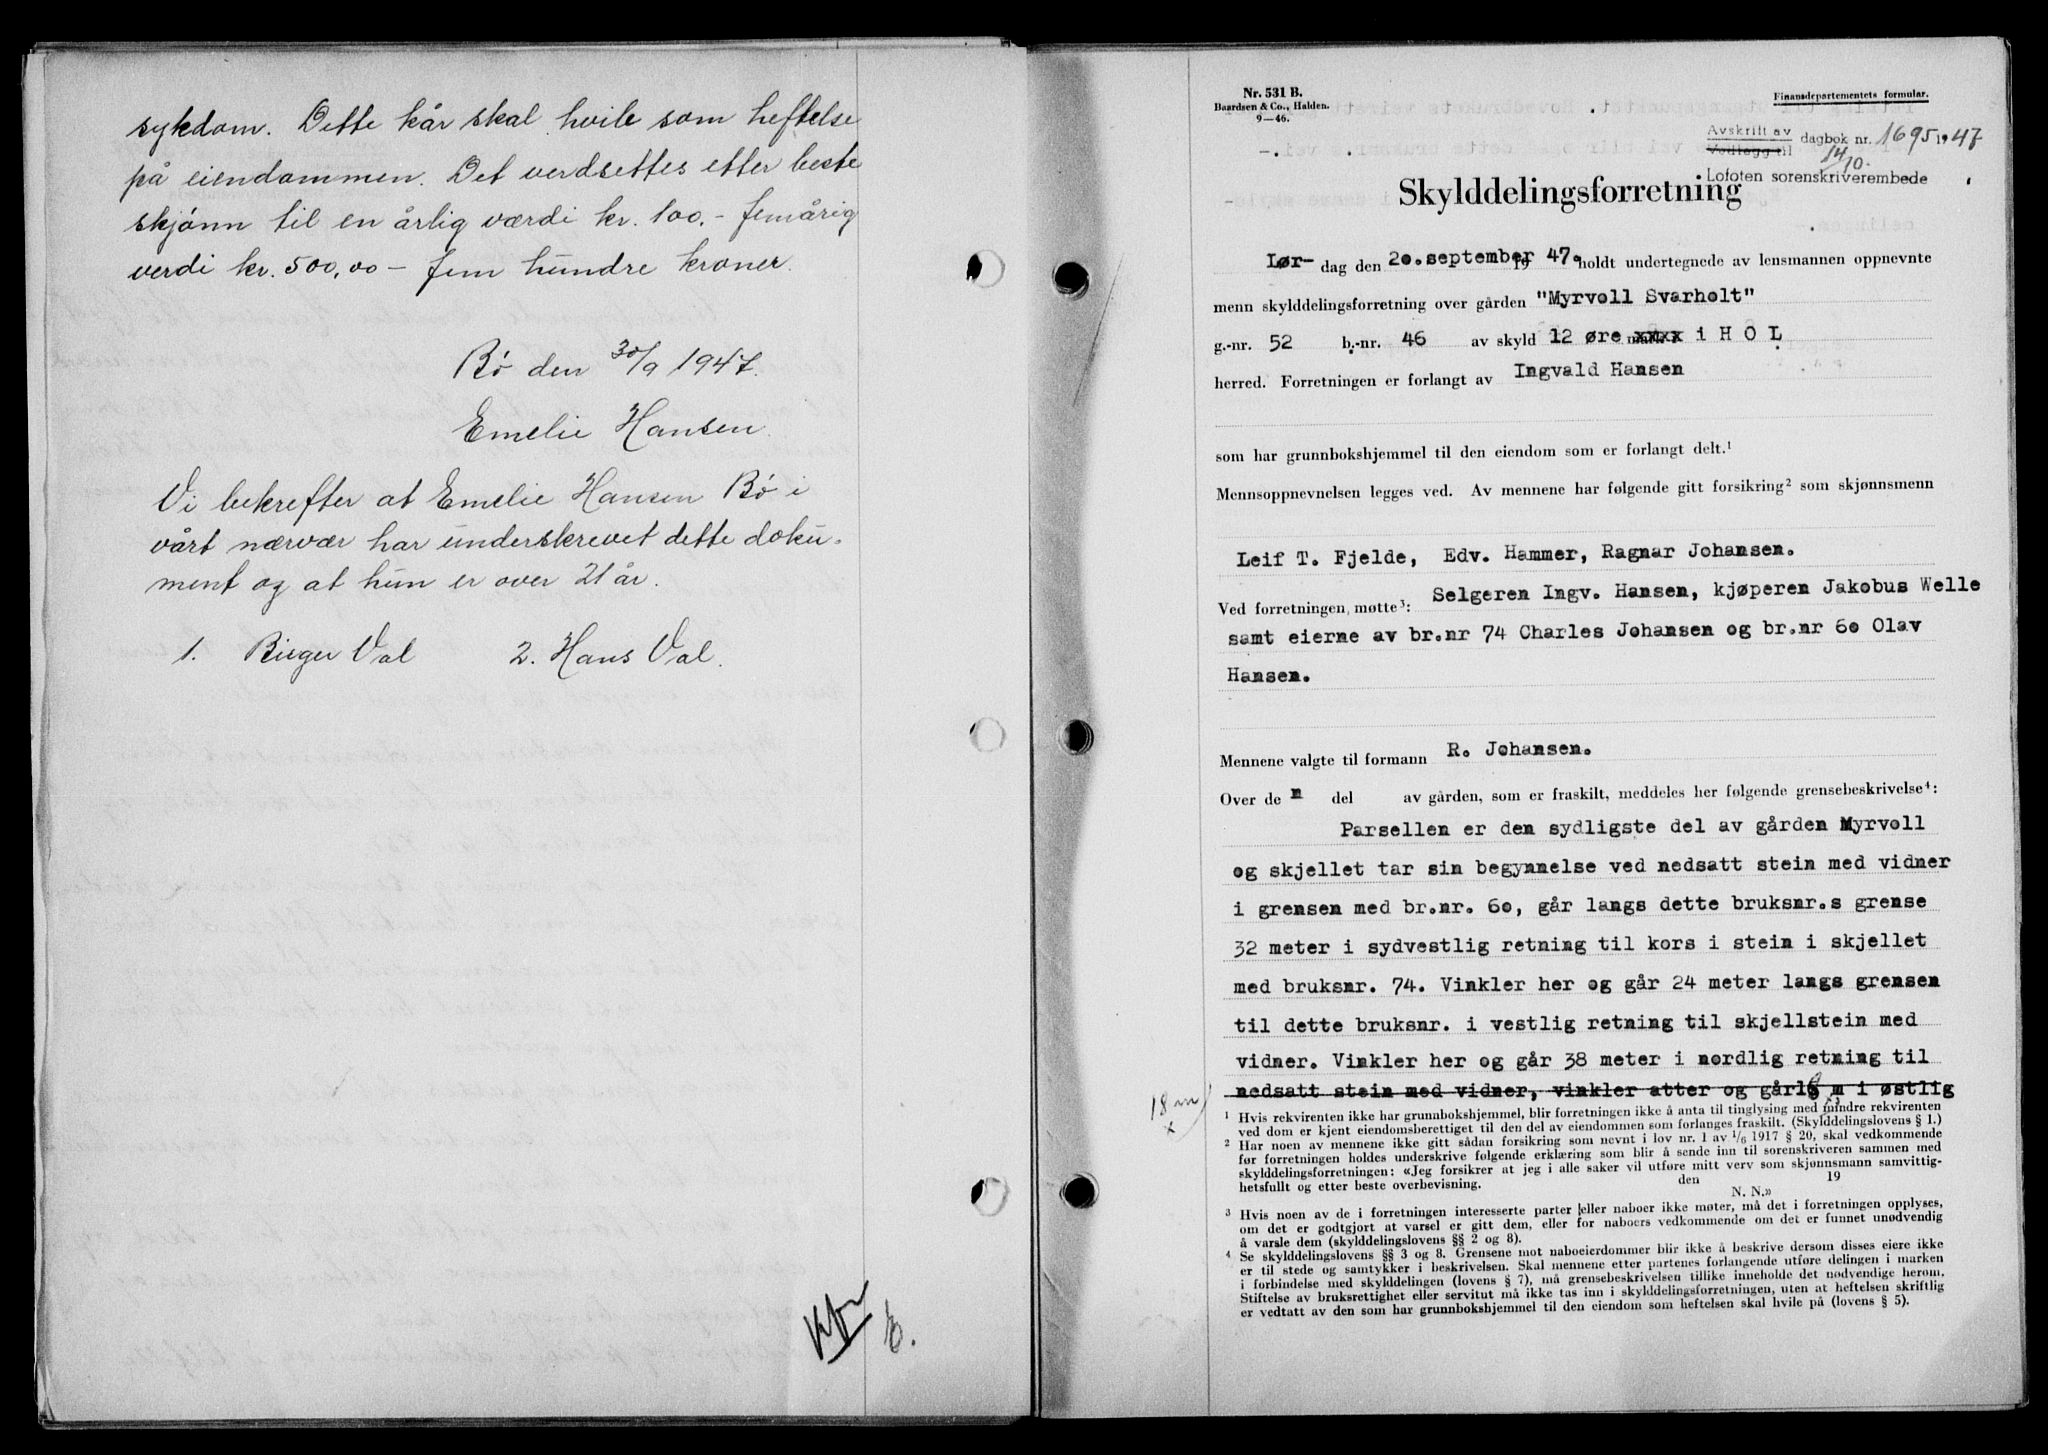 sykdom. Dette kår skal hvile som heftelse
på eiendommen. Det verdsettes etter beste
skjønn til en årlig værdi kr. 100.- femårig
verdi kr. 500,00 - fem hundre kroner.
Bø den 30/9 1947.
Emelie Hansen.
Vi bekrefter at Emelie Hansen Bø i
vårt nærvær har underskrevet dette doku-
ment og at hun er over 21 år.
1. Birger Val 2. Hans Val.
Nr. 531 B.
Baardsen & Co., Halden.
9—46.
Finansdepartementets formular.
Avskrift av
Vedlegg til dagbok nr. 1695 1947
14/10.
Lofoten sorenskriverembede
Skylddelingsforretning
Lør- dag den 20. september 19 47. holdt undertegnede av lensmannen oppnevnte
menn skylddelingsforretning over gården "Myrvoll Svarholt"
g.-nr. 52 b.-nr. 46 av skyld 12 øre mark i HOL
herred. Forretningen er forlangt av Ingvald Hansen
som har grunnbokshjemmel til den eiendom som er forlangt delt.¹
Mennsoppnevnelsen legges ved. Av mennene har følgende gitt forsikring² som skjønnsmenn
Leif T. Fjelde, Edv. Hammer, Ragnar Johansen.
Ved forretningen møtte³: Selgeren Ingv. Hansen, kjøperen Jakobus Welle
samt eierne av br.nr 74 Charles Johansen og br.nr 60 Olav
Hansen.
Mennene valgte til formann R. Johansen.
Over de n del av gården, som er fraskilt, meddeles her følgende grensebeskrivelse⁴:
Parsellen er den sydligste del av gården Myrvoll
og skjellet tar sin begynnelse ved nedsatt stein med vidner
i grensen med br.nr. 60, går langs dette bruksnr.s grense
32 meter i sydvestlig retning til kors i stein i skjellet
med bruksnr. 74. Vinkler her og går 24 meter langs grensen
til dette bruksnr. i vestlig retning til skjellstein med
vidner. Vinkler her og går 38 meter i nordlig retning til
nedsatt stein med vidner, vinkler atter og går 18 m i østlig
18 m
x
¹ Hvis rekvirenten ikke har grunnbokshjemmel, blir forretningen ikke å anta til tinglysing med mindre rekvirenten
ved dom er kjent eiendomsberettiget til den del av eiendommen som forlanges fraskilt. (Skylddelingslovens § 1.)
² Har noen av mennene ikke gitt sådan forsikring som nevnt i lov nr. 1 av 1/6 1917 § 20, skal vedkommende
før forretningen holdes underskrive følgende erklæring som blir å sende inn til sorenskriveren sammen med
skylddelingsforretningen: «Jeg forsikrer at jeg i alle saker vil utføre mitt verv som skjønnsmann samvittig-
hetsfullt og etter beste overbevisning. den 19
N. N.»
³ Hvis noen av de i forretningen interesserte parter eller naboer ikke møter, må det i forretningen opplyses,
om det er godtgjort at varsel er gitt dem, eller for naboers vedkommende om det er funnet unødvendig
å varsle dem (skylddelingslovens §§ 2 og 8).
⁴ Se skylddelingslovens §§ 3 og 8. Grensene mot naboeierdommer blir ikke å beskrive dersom disses eiere ikke
er til stede og samtykker i beskrivelsen. Skal mennene etter partenes forlangende utføre delingen i marken
i forbindelse med skylddelingen (lovens § 7), må grensebeskrivelsen tillike inneholde det nødvendige herom.
Stiftelse av bruksrettighet eller servitut må ikke tas inn i skylddelingsforretningen, uten at heftelsen skriftlig
er vedtatt av den som har grunnbokshjemmel til den eiendom som heftelsen skal hvile på (lovens § 5).